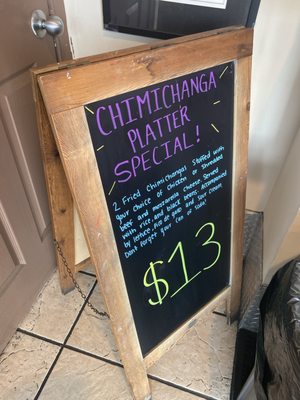 CHIMICHANGA
PLATTER
SPECIAL!
2 Fried Chimichangas stuffed with
your choice of chicken or shredded
beef and mozzarella cheese. Served
with rice, and black beans. Accompanied
by lettuce, pico de gallo and sour cream
Dont forget your can of soda!
$13